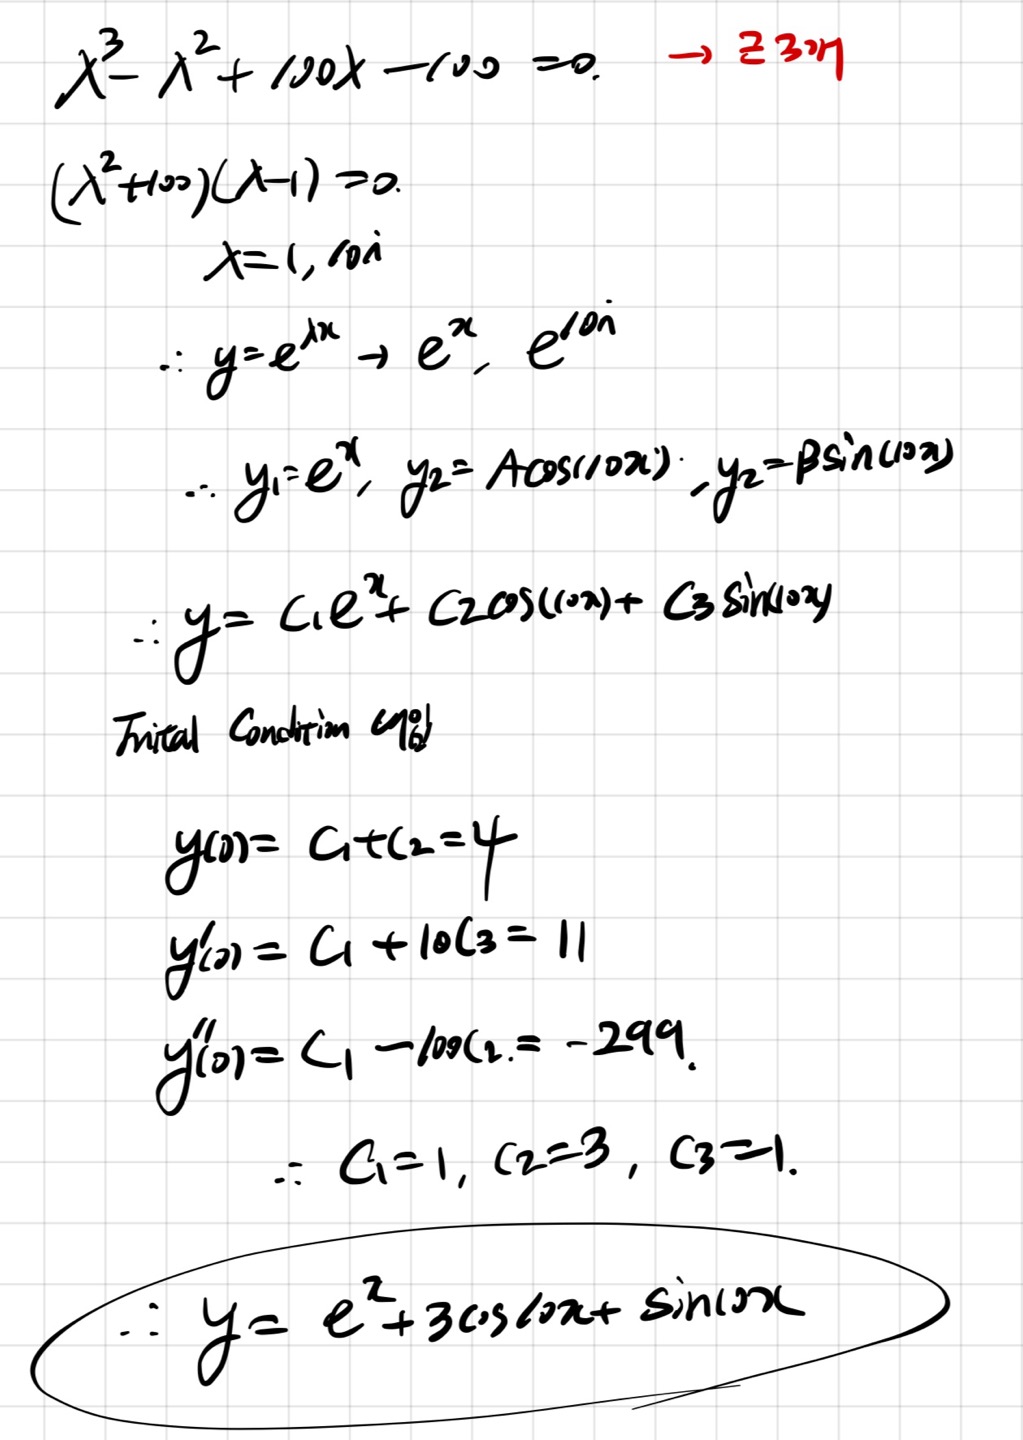 λ³ - λ² + 100λ - 100 = 0. → 근 3개
(λ²+100)(λ-1) = 0.
λ = 1, 10i
∴ y = e^{λx} → e^x, e^{10i}
∴ y₁ = e^x, y₂ = A cos(10x), y₂ = B sin(10x)
∴ y = C₁e^x + C₂cos(10x) + C₃ sin(10x)
Initial Condition 대입
y(0) = C₁ + C₂ = 4
y'(0) = C₁ + 10C₃ = 11
y''(0) = C₁ - 100C₂. = -299.
∴ C₁ = 1, C₂ = 3, C₃ = 1.
∴ y = e^x + 3cos10x + sin10x